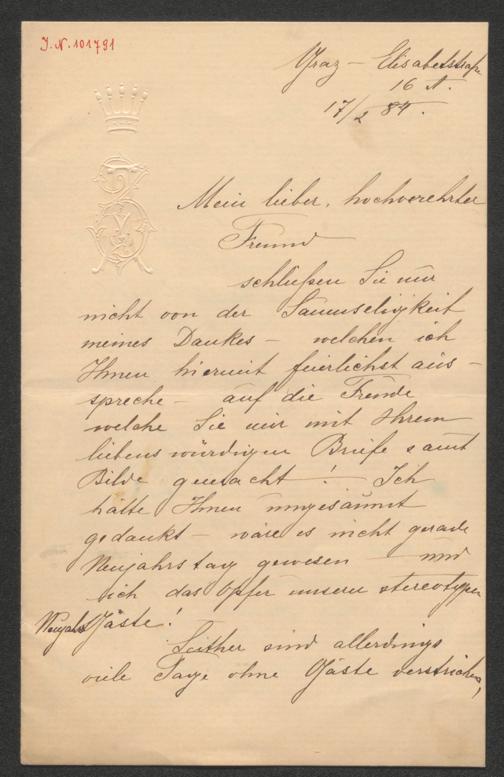 J. N. 101791
Graz – Elisabethstraße
16 A.
17/2 84.
Mein lieber, hochverehrter
Freund
schließen Sie nur
nicht von der Saumseligkeit
meines Dankes – welchen ich
Ihnen hiermit feierlichst aus-
spreche – auf die Freude
welche Sie mir mit Ihrem
liebenswürdigen Briefe samt
Bilde gemacht! Ich
hätte Ihnen ungesäumt
gedankt – wäre es nicht gerade
Neujahrstag gewesen – und
ich das Opfer unserer stereotypen
Neujahrs Gäste!
Seither sind allerdings
viele Tage ohne Gäste verstrichen,